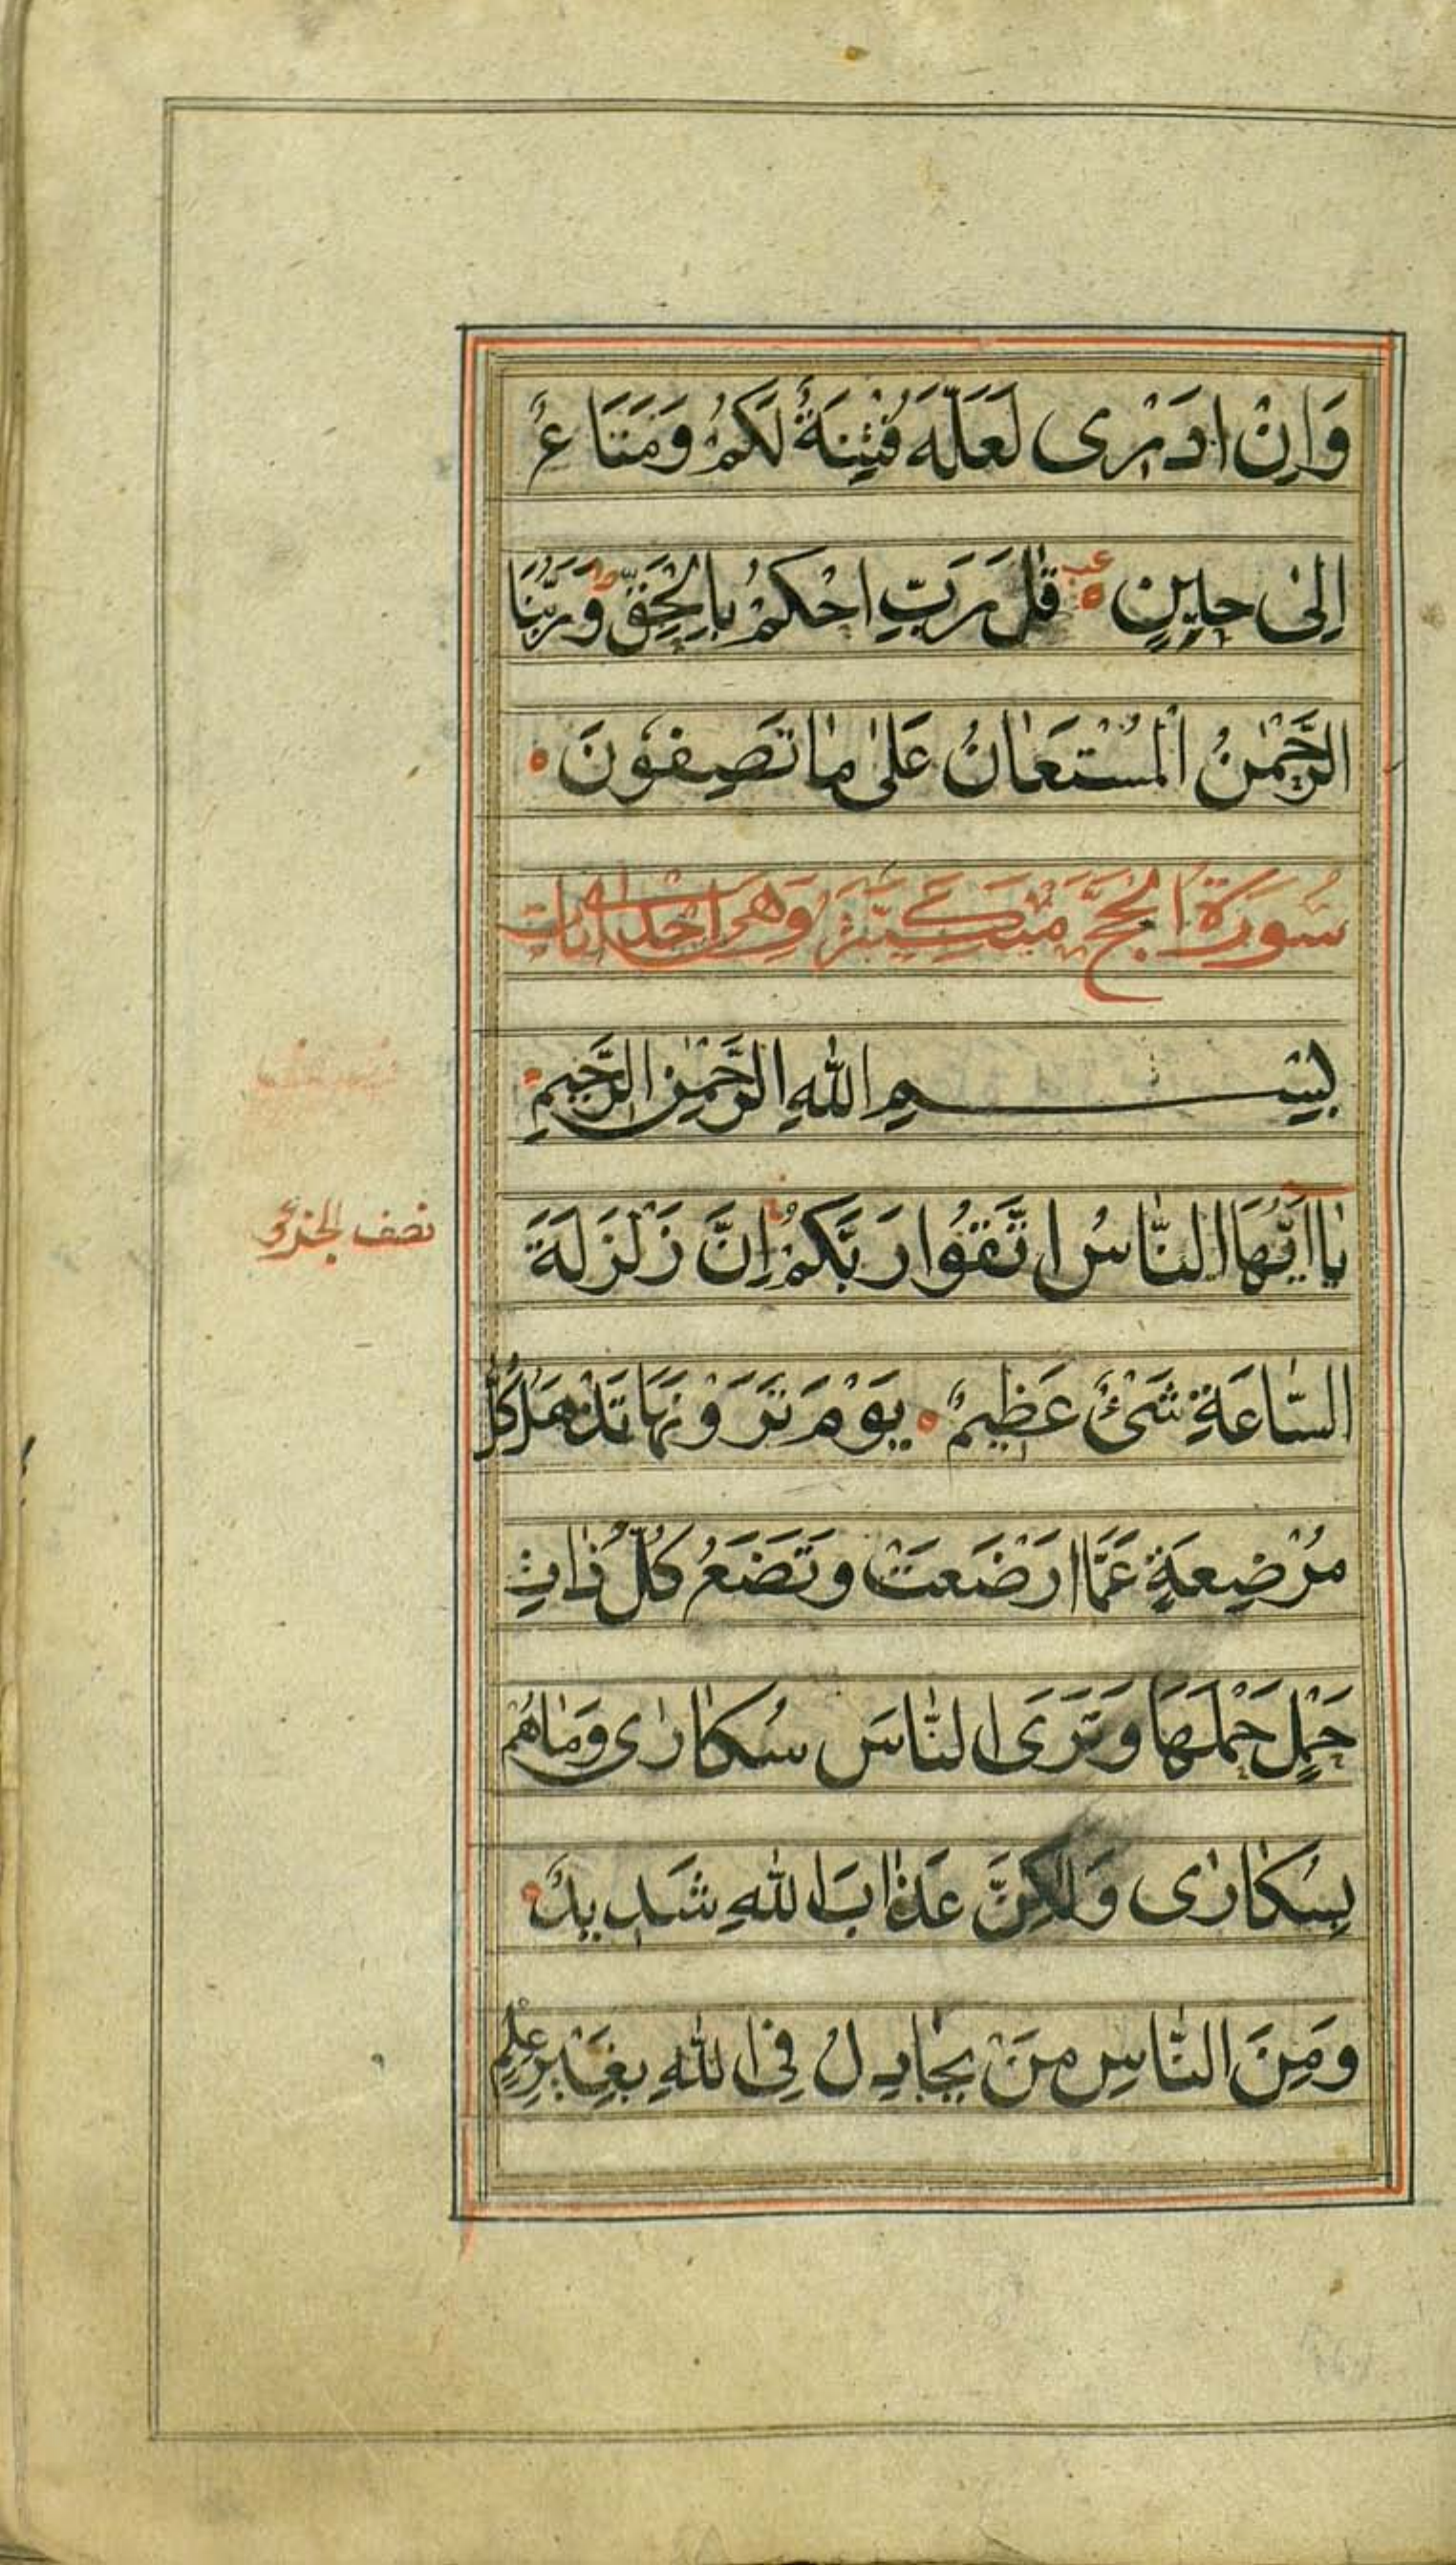 وَاِنْ اَدْرٰى لَعَلَّهُ فِتْنَةٌ لَكُمْ وَمَتَاعٌ
اِلٰى حٖينٍ قُلْ رَبِّ احْكُمْ بِالْحَقِّ وَرَبُّنَا
الرَّحْمٰنُ الْمُسْتَعَانُ عَلٰى مٰا تَصِفُونَ
سُورَةُ الْحَجِّ وَهِىَ اٰيات
بِسْمِ اللهِ الرَّحْمٰنِ الرَّحٖيمِ
يٰا اَيُّهَا النّٰاسُ اتَّقُوا رَبَّكُمْ اِنَّ زَلْزَلَةَ
نصف الجزؤ
السّٰاعَةِ شَىْءٌ عَظٖيمٌ يَوْمَ تَرَوْنَهَا تَذْهَلُ كُلُّ
مُرْضِعَةٍ عَمَّا اَرْضَعَتْ وَتَضَعُ كُلُّ ذٰاتِ
حَمْلٍ حَمْلَهَا وَتَرَى النّٰاسَ سُكٰارٰى وَمٰا هُمْ
بِسُكٰارٰى وَلٰكِنَّ عَذٰابَ اللهِ شَدٖيدٌ
وَمِنَ النّٰاسِ مَنْ يُجٰادِلُ فِى اللهِ بِغَيْرِ عِلْمٍ